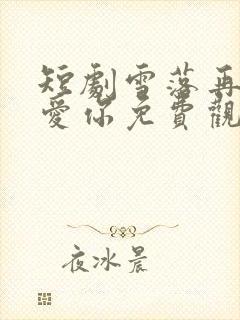 短劇雪落再
愛你免費觀
夜冰晨